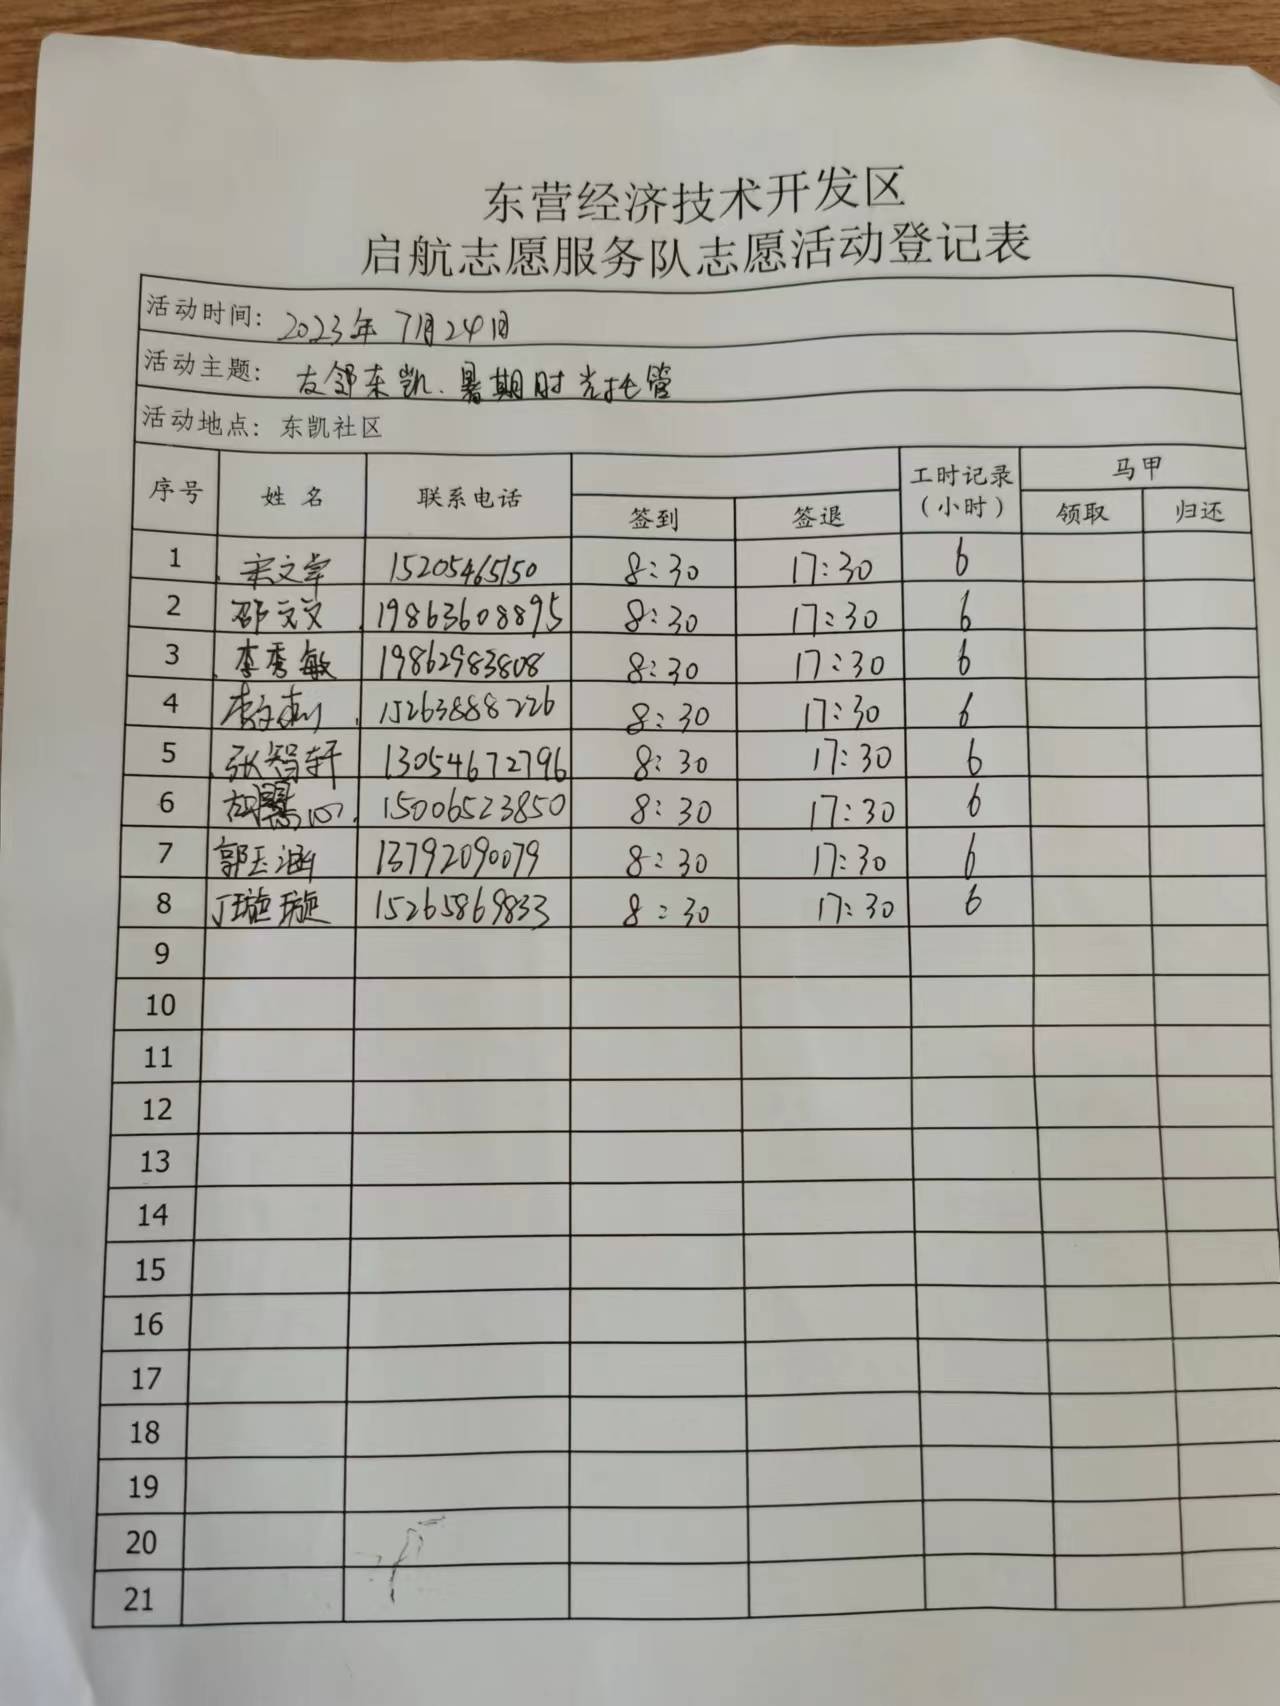 东营经济技术开发区
启航志愿服务队志愿活动登记表
活动时间: 2023年7月24日
活动主题: 友邻东凯.暑期时光托管
活动地点: 东凯社区
序号 姓名 联系电话 工时记录 马甲
签到 签退 (小时) 领取 归还
1 宋文卓 15205465150 8:30 17:30 6
2 邵文文 19863608895 8:30 17:30 6
3 李秀敏 19862983808 8:30 17:30 6
4 15263888226 8:30 17:30 6
5 张智轩 13054672796 8:30 17:30 6
6 15006523850 8:30 17:30 6
7 郭玉涵 13792090079 8:30 17:30 6
8 丁璇璇 15265869833 8:30 17:30 6
9
10
11
12
13
14
15
16
17
18
19
20
21